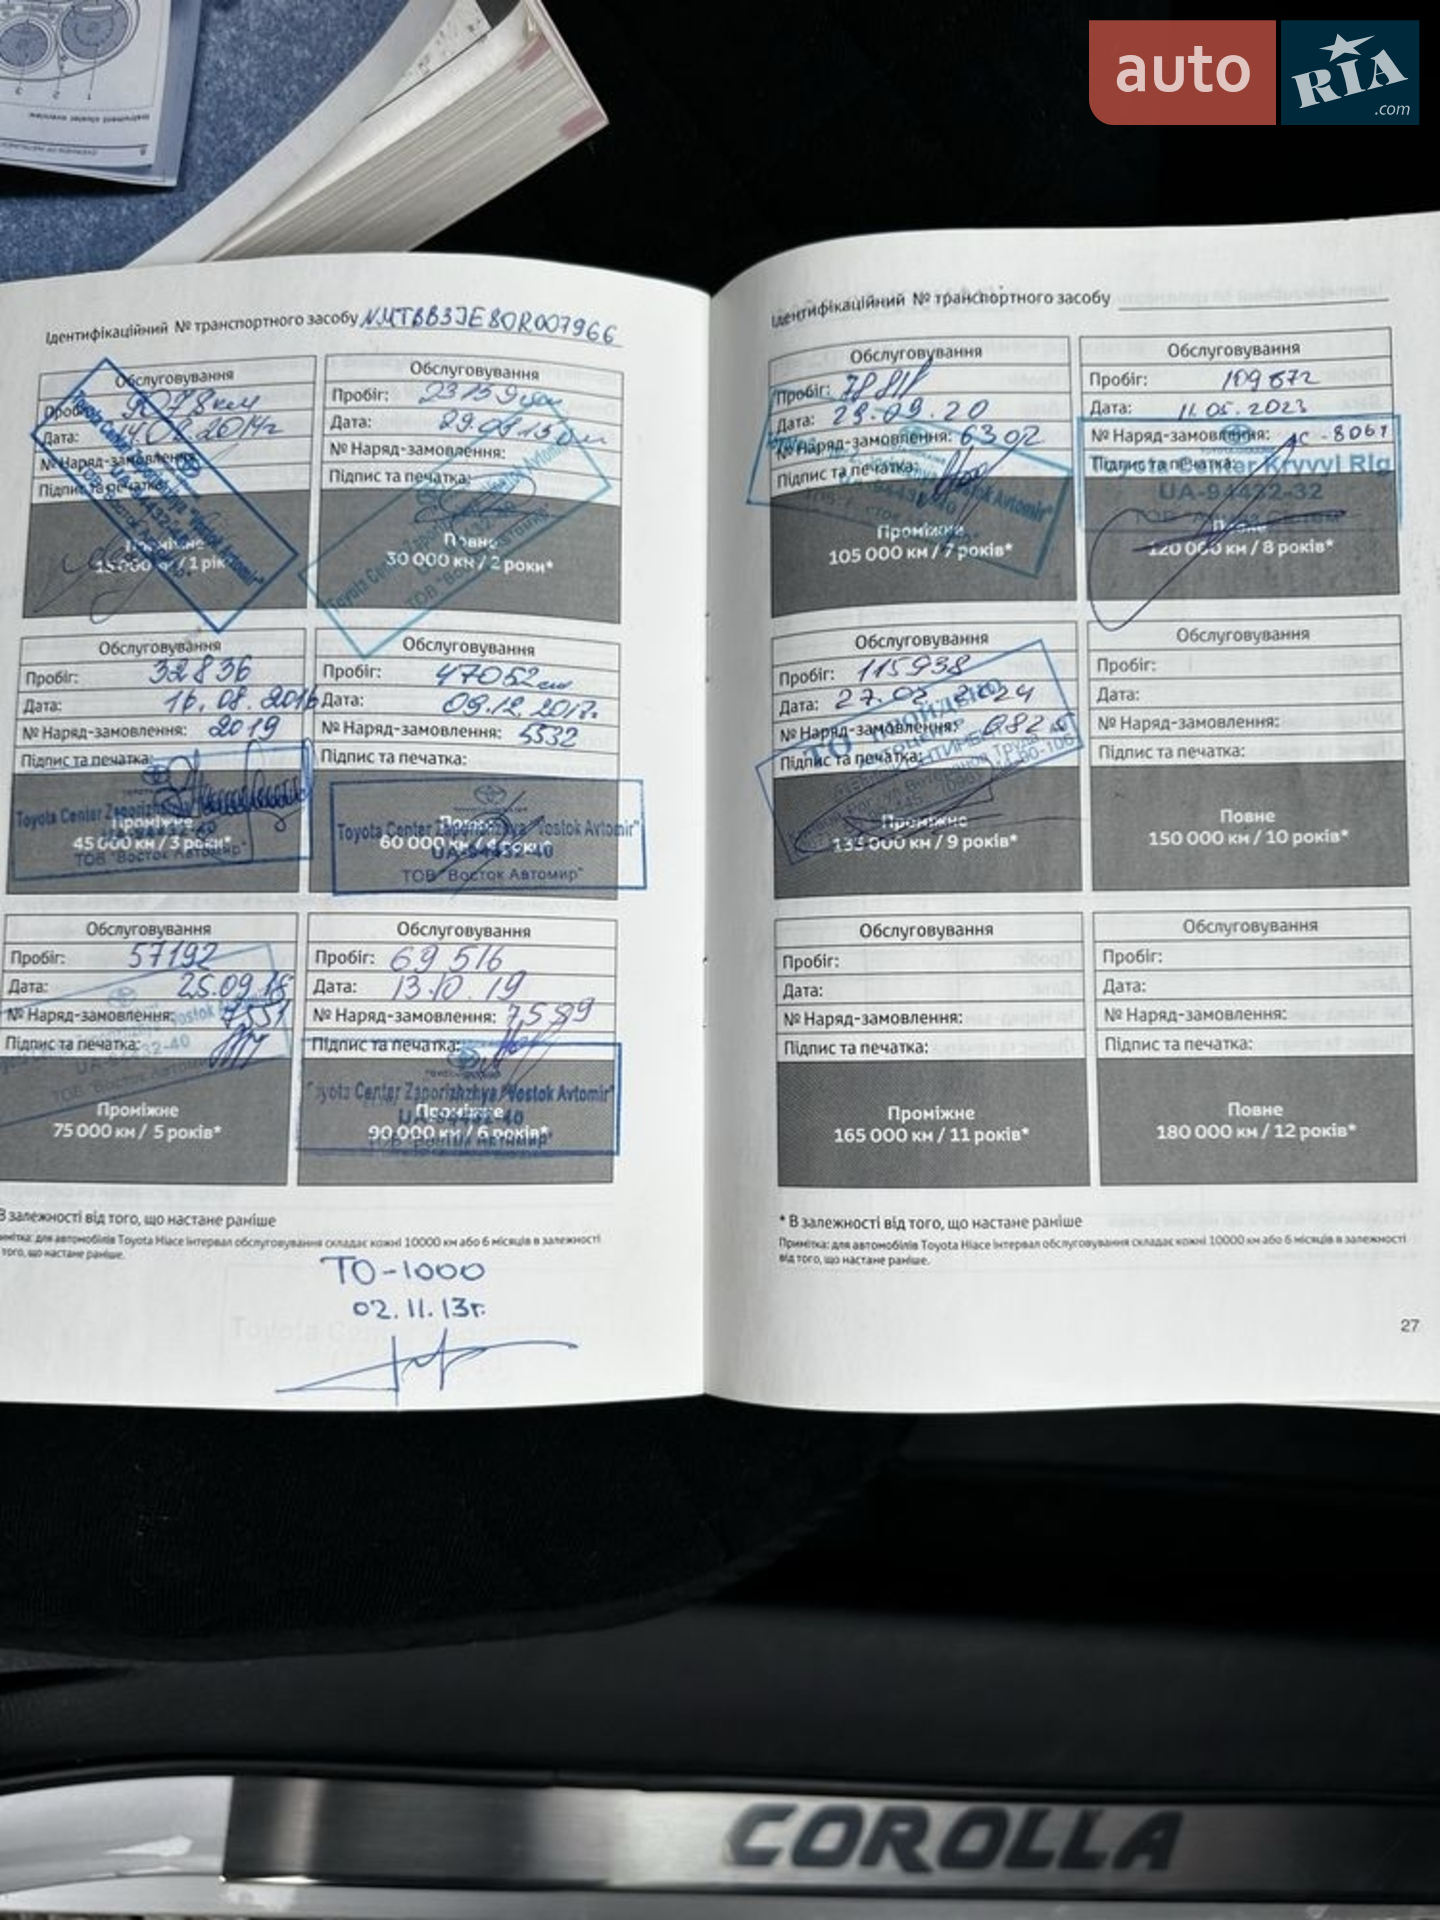 auto RIA .com
Instrument cluster overview
Ідентифікаційний № транспортного засобу NMTBB3JE80R007966
Обслуговування
Пробіг: 9078 км
Дата: 14.02.2014г
№ Наряд-замовлення:
Підпис та печатка:
1 рік
Обслуговування
Пробіг: 23159 км
Дата:
№ Наряд-замовлення:
Підпис та печатка:
Повне
30 000 км / 2 роки*
Обслуговування
Пробіг: 32836
Дата: 16.08.2016
№ Наряд-замовлення: 2019
Підпис та печатка:
Toyota Center Zaporizhzhya
UA-94432-40
ТОВ "Восток Автомир"
Проміжне
45 000 км / 3 роки*
Обслуговування
Пробіг: 47052 км
Дата: 09.12.2017г.
№ Наряд-замовлення: 5532
Підпис та печатка:
Toyota Center Zaporizhzhya "Vostok Avtomir"
UA-94432-40
ТОВ "Восток Автомир"
60 000 км
Обслуговування
Пробіг: 57192
Дата: 25.09.18
№ Наряд-замовлення: 7551
Підпис та печатка:
Проміжне
75 000 км / 5 років*
Обслуговування
Пробіг: 69 516
Дата: 13.10.19
№ Наряд-замовлення: 7,5
Підпис та печатка:
Toyota Center Zaporizhzhya "Vostok Avtomir"
UA-94432-40
Проміжне
90 000 км / 6 років*
В залежності від того, що настане раніше
для автомобілів Toyota Hiace інтервал обслуговування складає кожні 10000 км або 6 місяців в залежності
того, що настане раніше.
ТО-1000
02.11.13г.
Ідентифікаційний № транспортного засобу
Обслуговування
Пробіг: 78 811
Дата: 29.09.20
№ Наряд-замовлення: 6302
Підпис та печатка:
Проміжне
105 000 км / 7 років*
Обслуговування
Пробіг: 109 672
Дата: 11.05.2023
№ Наряд-замовлення: АС-8061
Підпис та печатка:
Center Kryvyi Rig
UA-94432-32
120 000 км / 8 років*
Обслуговування
Пробіг: 115938
Дата: 2024
№ Наряд-замовлення:
Підпис та печатка:
ТО ПРОЙДЕНО
Проміжне
135 000 км / 9 років*
Обслуговування
Пробіг:
Дата:
№ Наряд-замовлення:
Підпис та печатка:
Повне
150 000 км / 10 років*
Обслуговування
Пробіг:
Дата:
№ Наряд-замовлення:
Підпис та печатка:
Проміжне
165 000 км / 11 років*
Обслуговування
Пробіг:
Дата:
№ Наряд-замовлення:
Підпис та печатка:
Повне
180 000 км / 12 років*
* В залежності від того, що настане раніше
Примітка: для автомобілів Toyota Hiace інтервал обслуговування складає кожні 10000 км або 6 місяців в залежності
від того, що настане раніше.
27
COROLLA